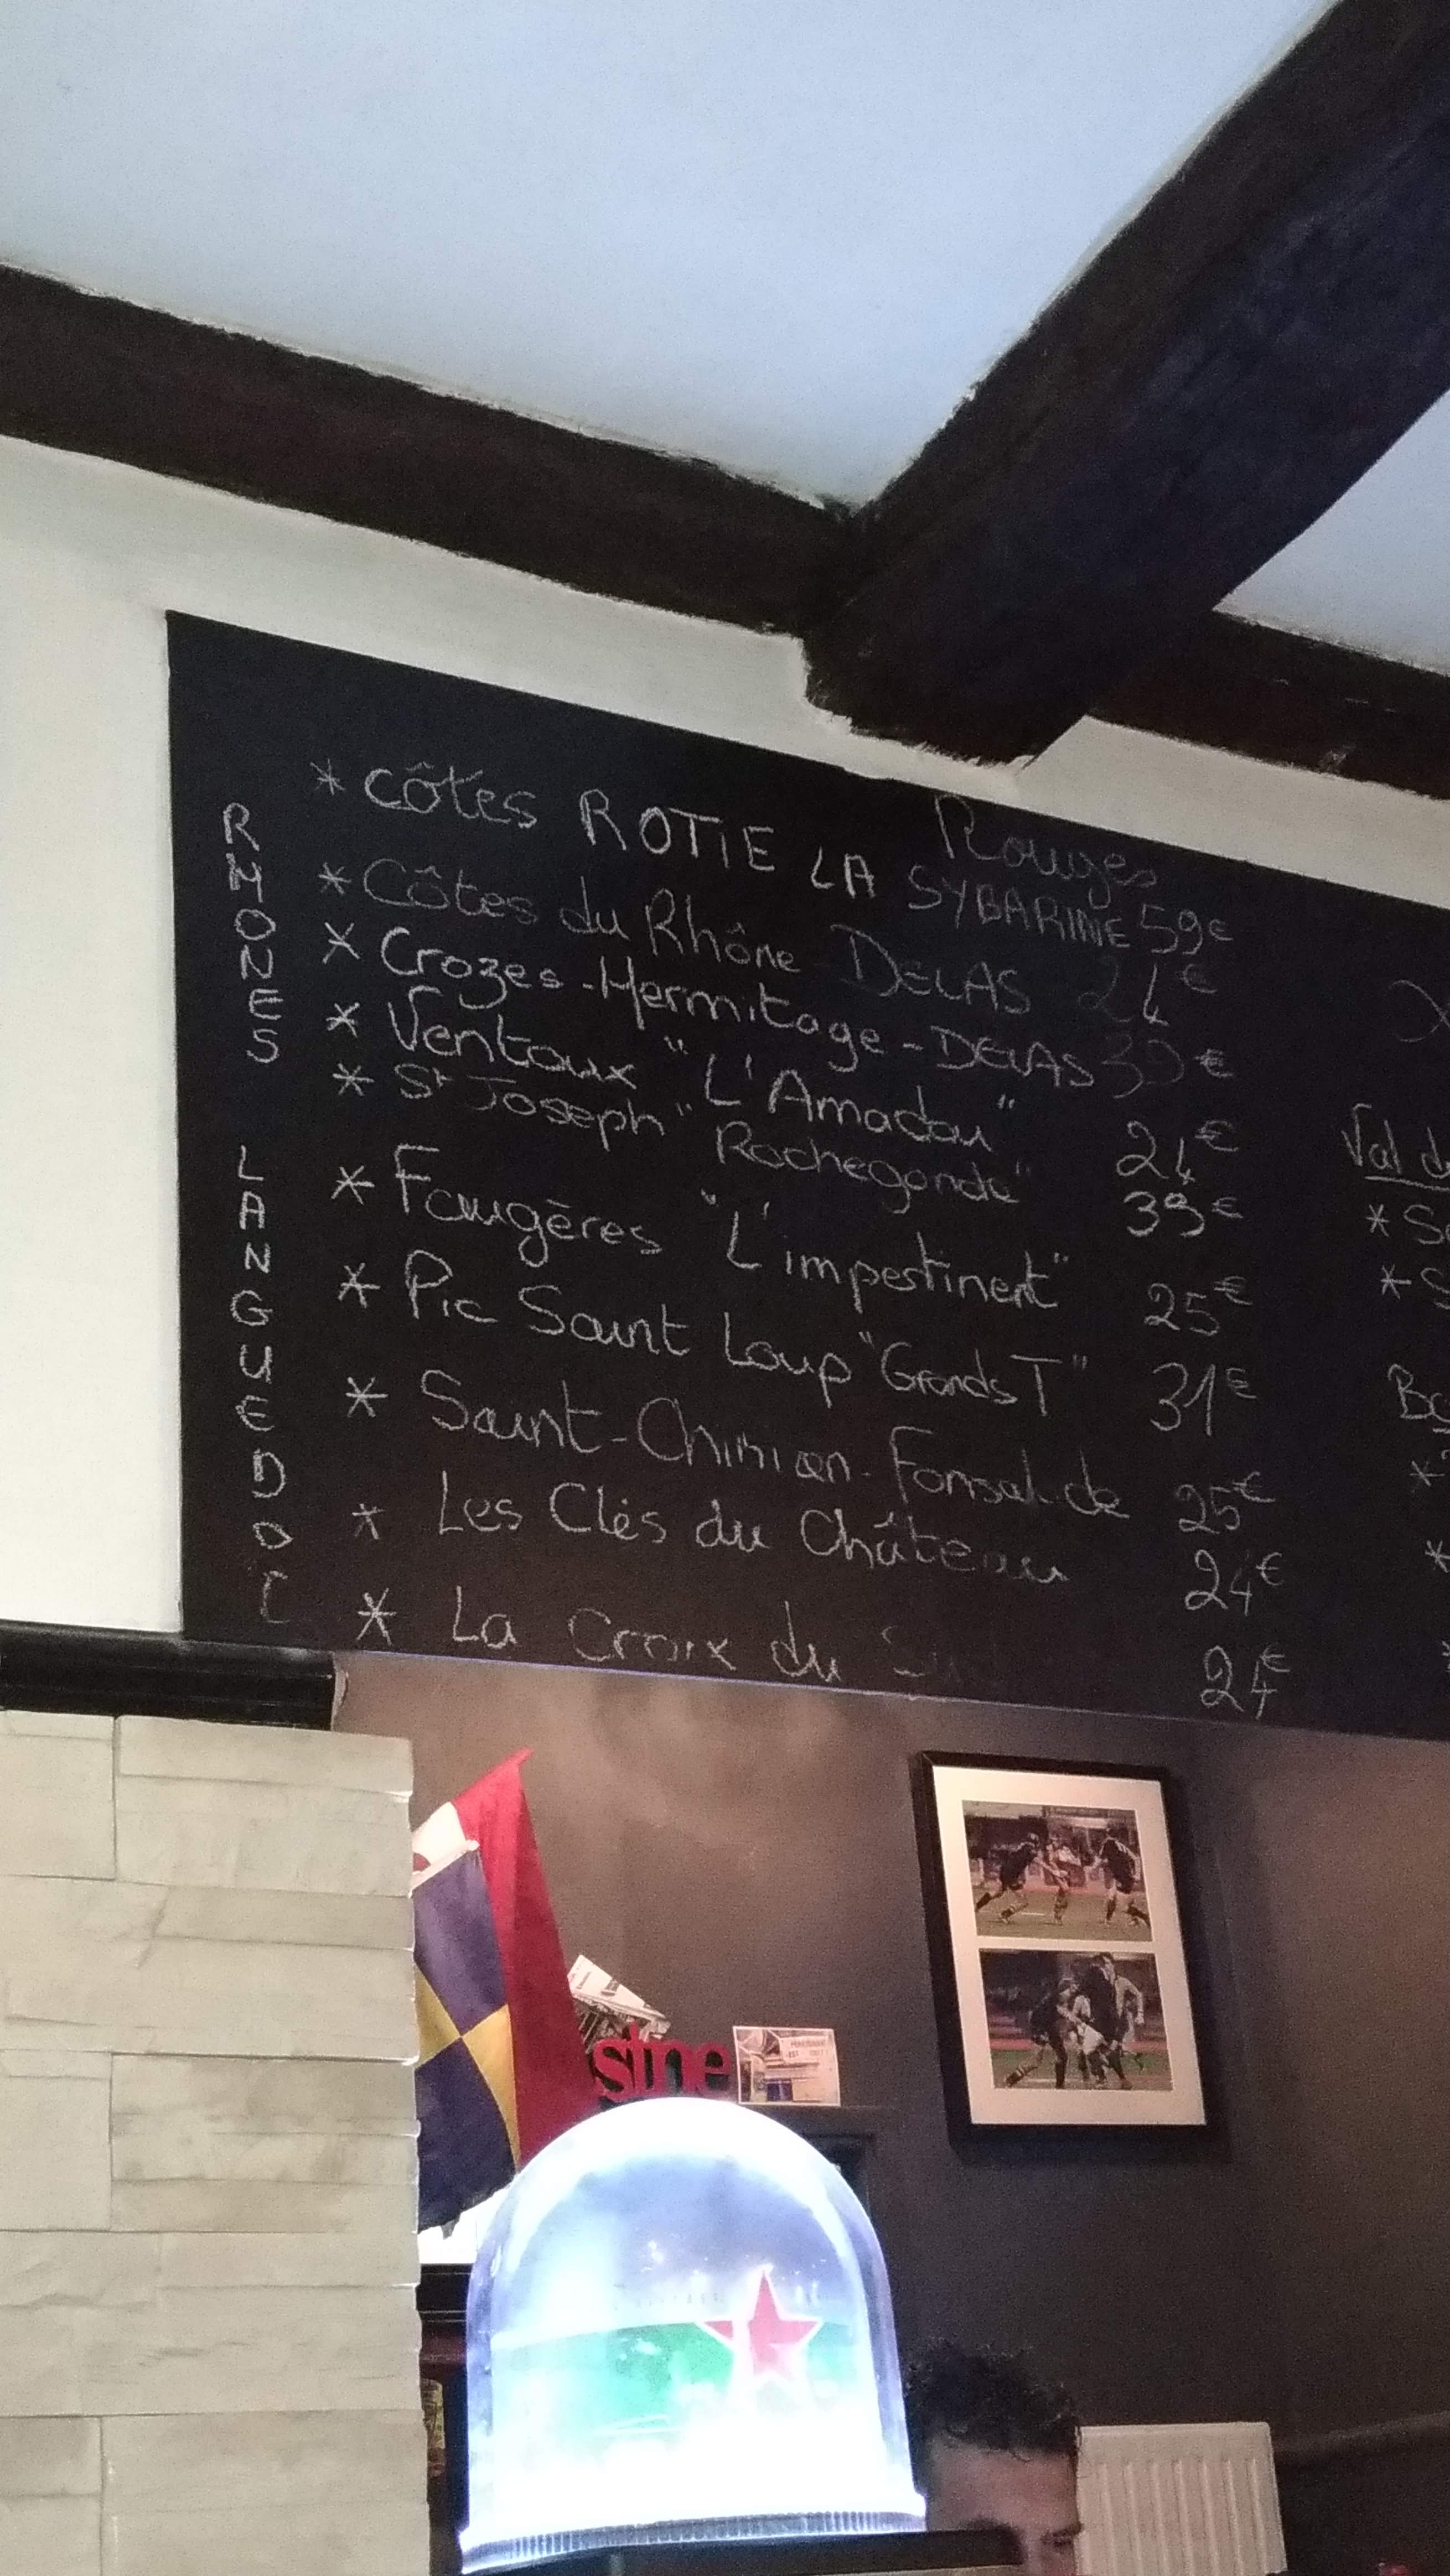 Rouges
* Côtes ROTIE LA SYBARINE 59€
* Côtes du Rhône DELAS 24€
* Crozes-Hermitage-DELAS 39€
* Ventoux "L'Amadou" 24€
* St Joseph "Rochegonde" 39€
* Faugères "L'impertinent" 25€
* Pic Saint Loup "Grands T" 31€
* Saint-Chinian-Fonsalade 25€
* Les Clés du Château 24€
* La Croix du Sud 24€
RHONES
LANGUEDOC
Val d
* S
* S
sine